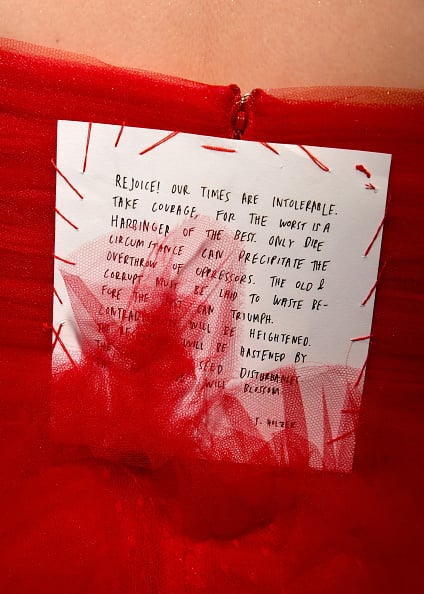 REJOICE! OUR TIMES ARE INTOLERABLE.
TAKE COURAGE, FOR THE WORST IS A
HARBINGER OF THE BEST. ONLY DIRE
CIRCUMSTANCE CAN PRECIPITATE THE
OVERTHROW OF OPPRESSORS. THE OLD &
CORRUPT MUST BE LAID TO WASTE BE-
FORE THE JUST CAN TRIUMPH.
CONTRADICTION WILL BE HEIGHTENED.
THE WILL BE HASTENED BY
THE SEED DISTURBANCES
WILL BLOSSOM.
J. HOLZER